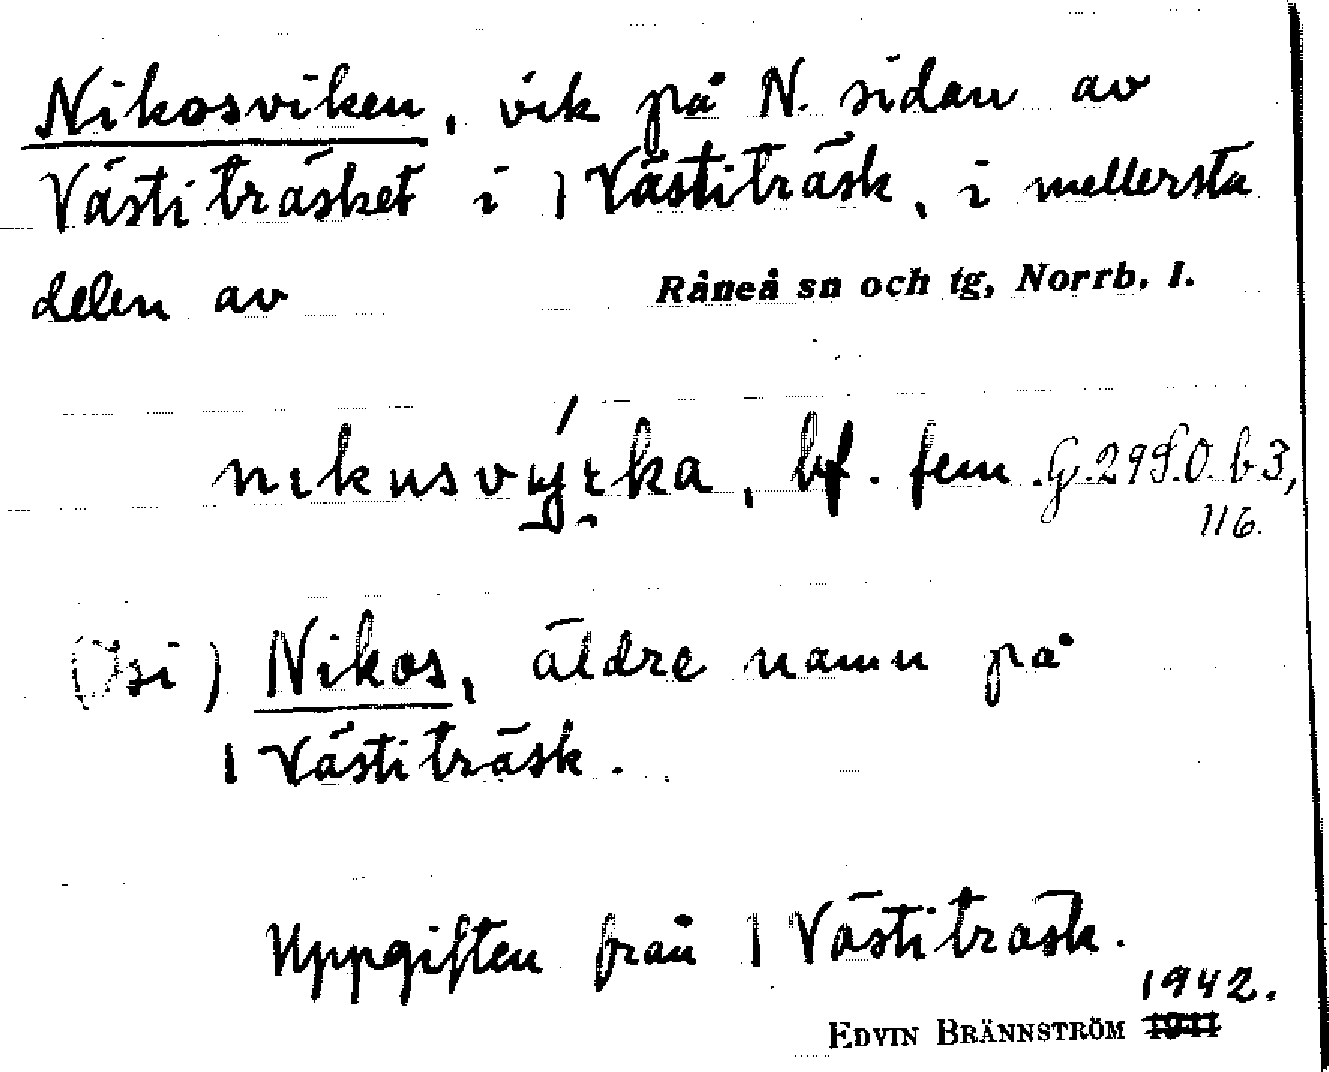 Nikosviken, vik på N. sidan av
Västiträsket i 1 Västiträsk, i mellersta
delen av Råneå sn och tg, Norrb. l.
bf. fem. G. 295.0. b 3,
116.
(Osi) Nikos, äldre namn på
1 Västiträsk.
Uppgiften från 1 Västiträsk.
1942.
EDVIN BRÄNNSTRÖM 1941